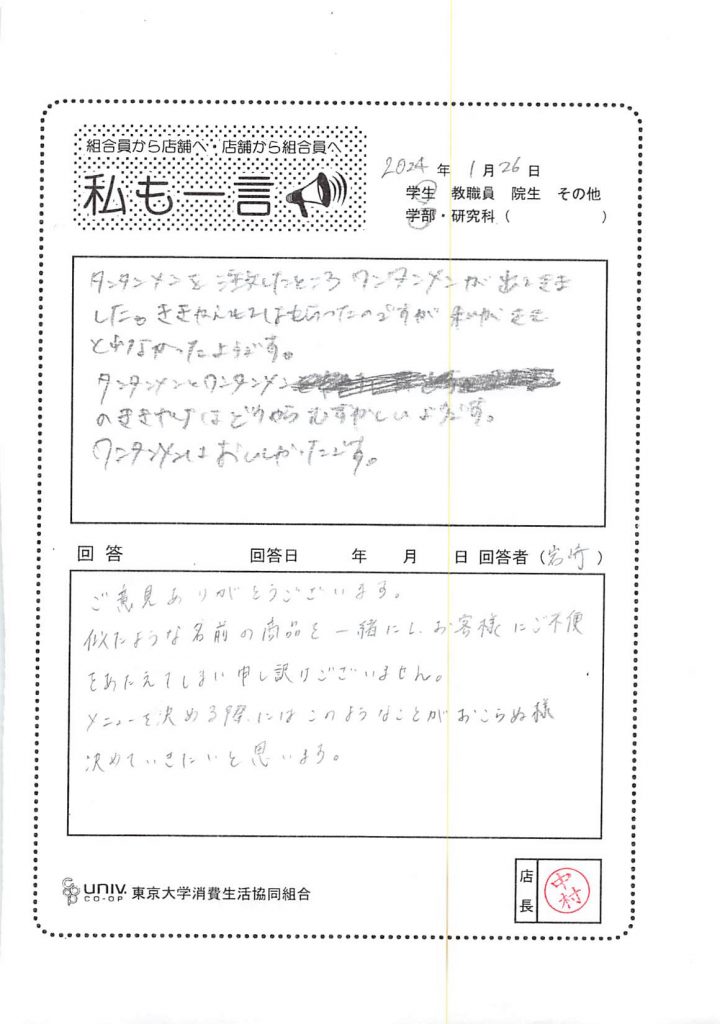 組合員から店舗へ・店舗から組合員へ
私も一言
2024年 1月26日
学生 教職員 院生 その他
学部・研究科（ ）
タンタンメンを注文したところワンタンメンが出てきま
した。ききかえしてはもらったのですが
とれなかったようです。
タンタンメンとワンタンメン
のききわけはどうやらむずかしいようです。
ワンタンメンはおいしかったです。
回答 回答日 年 月 日 回答者（岩崎）
ご意見ありがとうございます。
似たような名前の商品を一緒にし、お客様にご不便
をあたえてしまい申し訳けございません。
メニューを決める際にはこのようなことがおこらぬ様
決めていきたいと思います。
UNIV.
CO-OP
東京大学消費生活協同組合
店長
中村